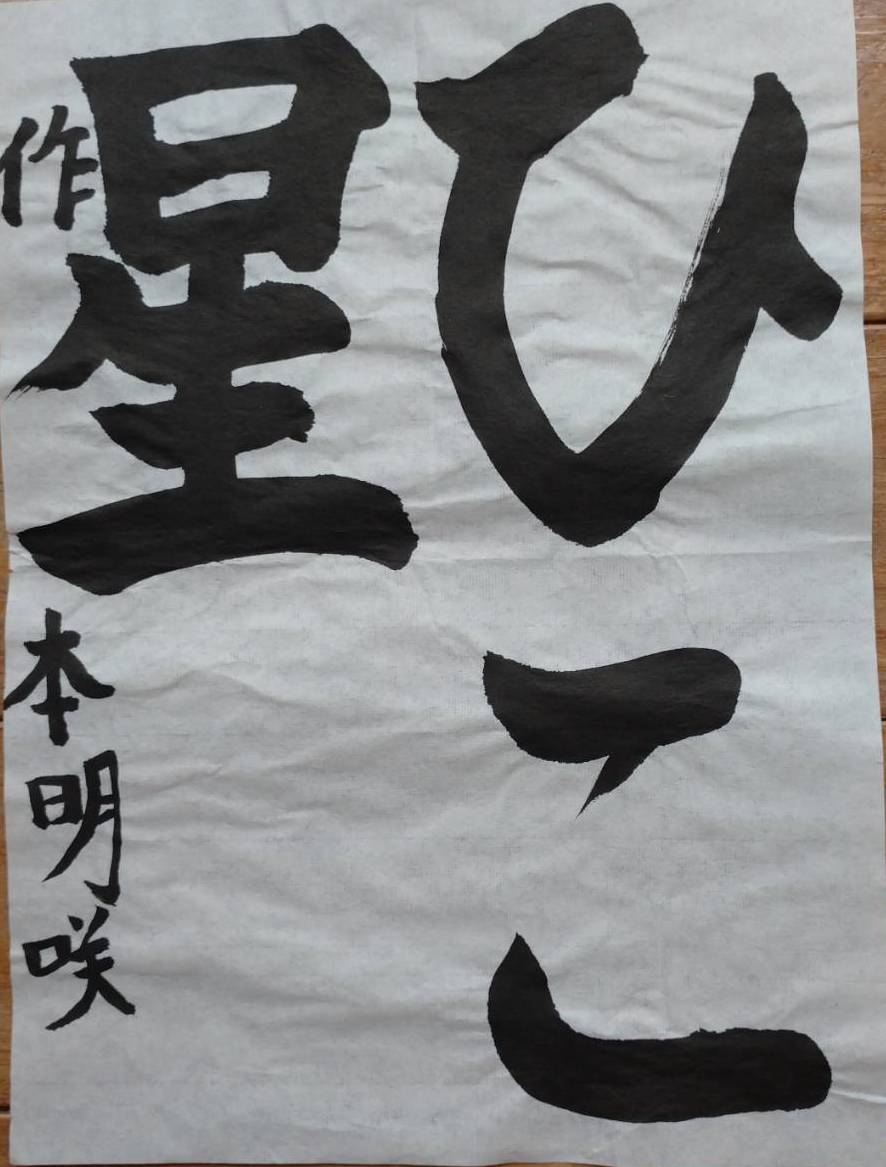 ひこ
星
作本明咲